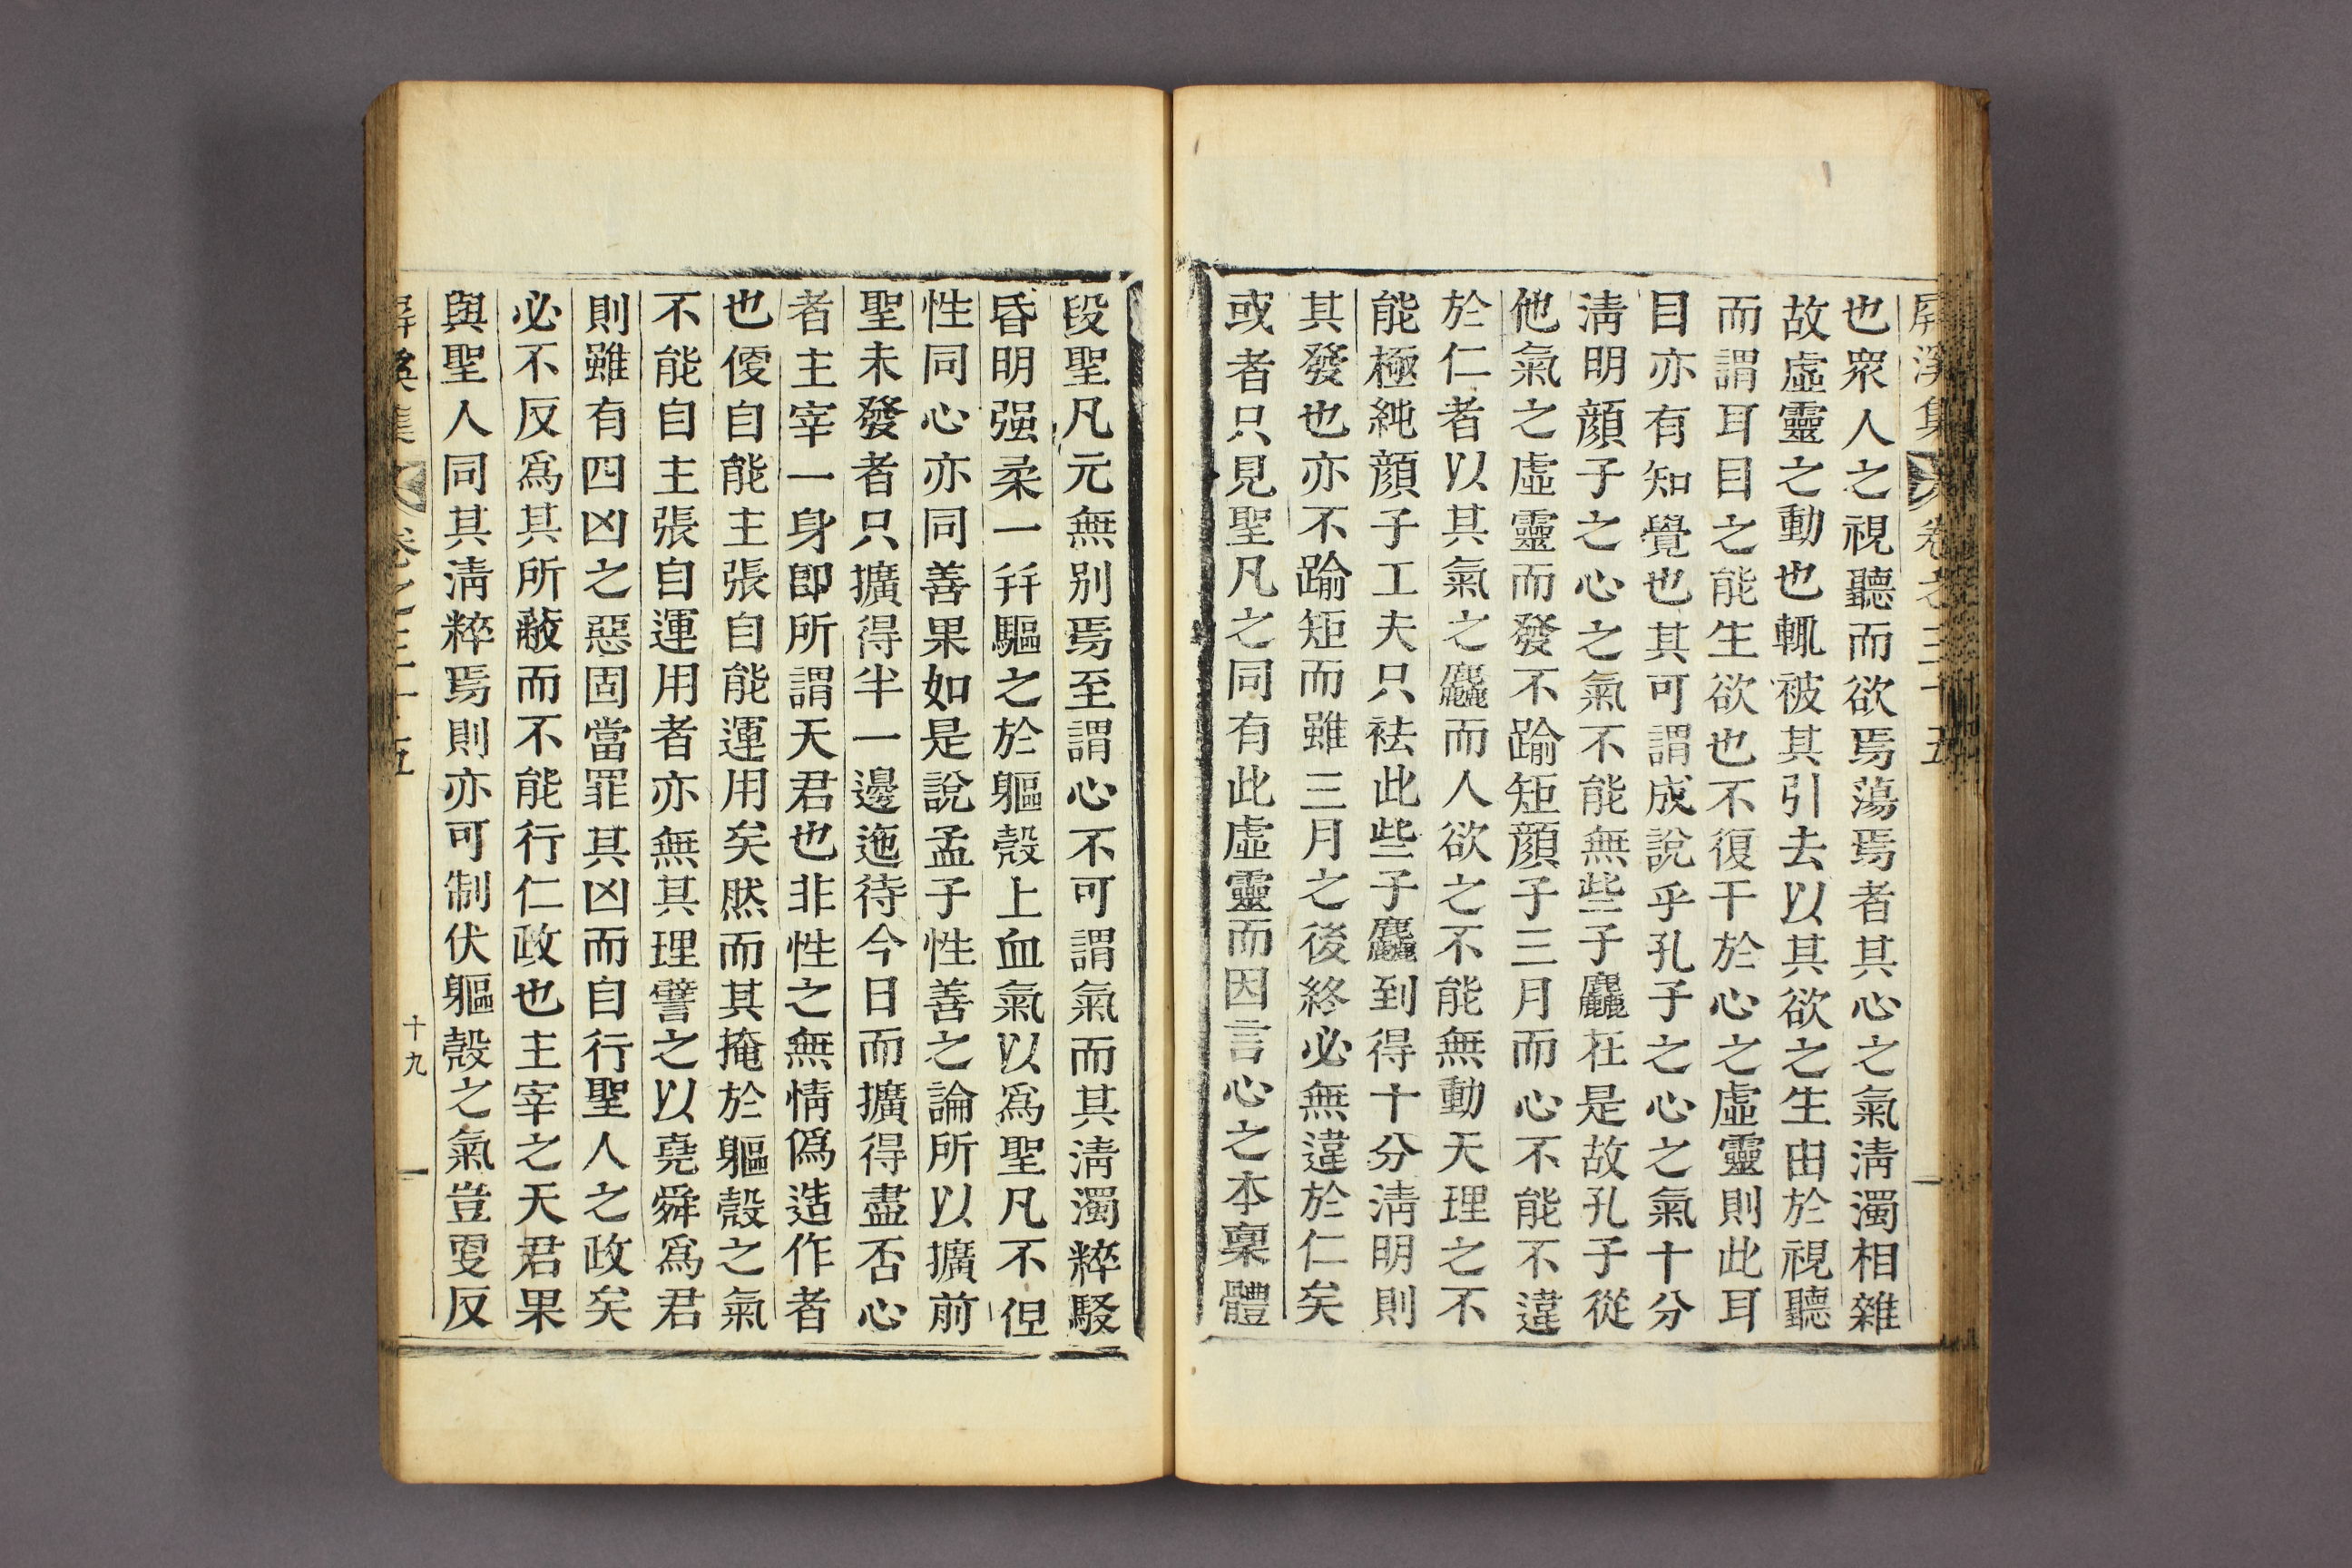 屏溪集 卷之三十五
也衆人之視聽而欲焉蕩焉者其心之氣淸濁相雜
故虛靈之動也輒被其引去以其欲之生由於視聽
而謂耳目之能生欲也不復干於心之虛靈則此耳
目亦有知覺也其可謂成說乎孔子之心之氣十分
淸明顔子之心之氣不能無些子麤在是故孔子從
他氣之虛靈而發不踰矩顔子三月而心不能不違
於仁者以其氣之麤而人欲之不能無動天理之不
能極純顔子工夫只袪此些子麤到得十分淸明則
其發也亦不踰矩而雖三月之後終必無違於仁矣
或者只見聖凡之同有此虛靈而因言心之本稟體
段聖凡元無別焉至謂心不可謂氣而其淸濁粹駁
昏明强柔一幷驅之於軀殼上血氣以爲聖凡不但
性同心亦同善果如是說孟子性善之論所以擴前
聖未發者只擴得半一邊迤待今日而擴得盡否心
者主宰一身卽所謂天君也非性之無情僞造作者
也優自能主張自能運用矣然而其掩於軀殼之氣
不能自主張自運用者亦無其理譬之以堯舜爲君
則雖有四凶之惡固當罪其凶而自行聖人之政矣
必不反爲其所蔽而不能行仁政也主宰之天君果
與聖人同其淸粹焉則亦可制伏軀殼之氣豈㪅反
屏溪集 卷之三十五 十九